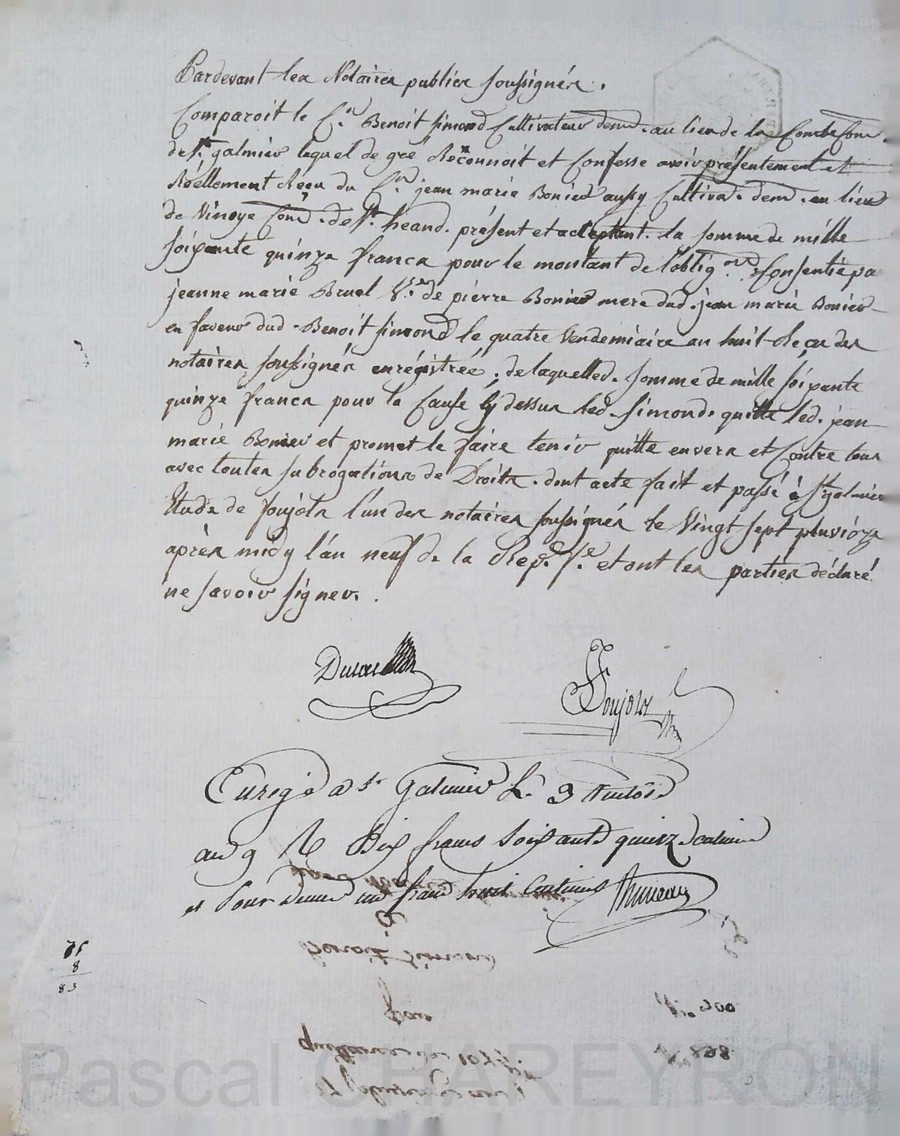 Pardevant les Notaires publics soussignés.
Comparoit le C.en Benoit Simond Cultivateur dem.t au lieu de la Combe Com.e
de S.t galmier lequel de gré Reconnoit et Confesse avoir présentement et
Réellement Reçu du C.en jean marie Bonier aussy Cultiva.r dem.t au lieu
de Vinoye Com.e de S.t héand. présent et acceptant. la somme de mille
soixante quinze francs pour le montant de l'oblig.on Consentie pa
jeanne marie Bruel V.e de pierre Bonier mere dud. jean marie Bonier
en faveur dud. Benoit Simond le quatre Vendemiaire an huit Reçue des
notaires soussignés enrégistrée; de laquelle d. somme de mille soixante
quinze francs pour la Cause Cy dessus led. Simond. quitte led. jean
marie Bonier et promet le faire tenir quitte envers et Contre tous
avec toutes subrogations de Droits. dont acte fait et passé à S.t galmier
Etude de Poujols l'un des notaires soussignés le Vingt sept pluvioze
après midy l'an neuf de la Rep.e f.se et ont les parties déclaré
ne savoir signer.
Poujols
Enregé a S.t Galmier Le 3 Ventose
an 9 R Dix francs soixante quinze centimes
et pour Subv. un franc huit centimes
Benoit Simond
pour
quittance de 1075.
N.o 300
N.o 898
75
8
83
Pascal CHAREYRON